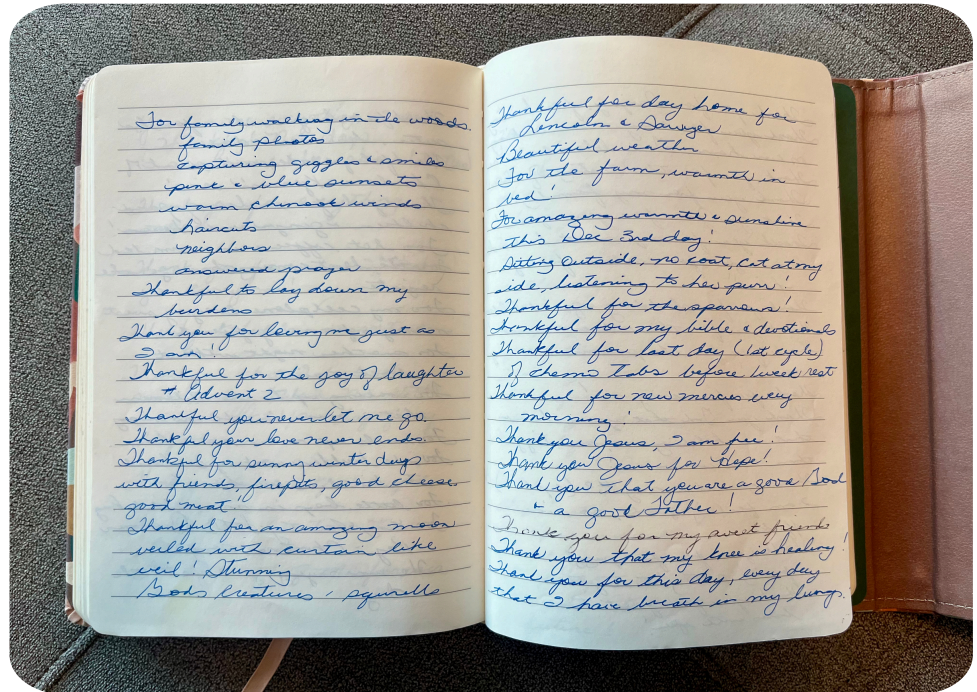 For family walking in the woods.
family photos
capturing giggles & smiles
pink & blue sunsets
warm chinook winds
haircuts
neighbors
answered prayer
Thankful to lay down my
burdens
Thank you for loving me just as
I am!
Thankful for the joy of laughter
# Advent 2
Thankful you never let me go.
Thankful your love never ends.
Thankful for sunny winter days
with friends, firepits, good cheese,
good meat.
Thankful for an amazing moon
veiled with curtain like
veil! Stunning
Gods creatures, squirells
Thankful for day home for
Lincoln & Sawyer
Beautiful weather
For the farm, warmth in
bed!
For amazing warmth & sunshine
this Dec 3rd day!
Sitting Outside, no coat, cat at my
side, listening to her purr!
Thankful for the sparrows!
Thankful for my bible & devotionals
Thankful for last day (1st cycle)
of chemo tabs before 1 week rest
Thankful for new mercies every
morning!
Thank you Jesus, I am free!
Thank you Jesus for Hope!
Thank you that you are a good God
& a good Father!
Thank you for my sweet friends
Thank you that my knee is healing!
Thank you for this day, every day
that I have breath in my lungs.